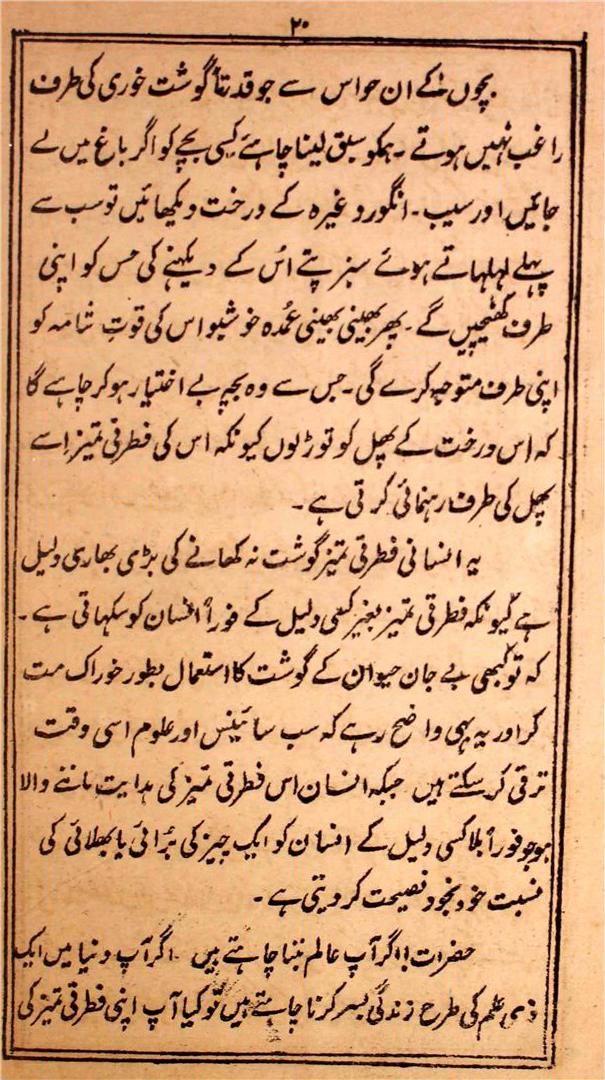 ۲۰
بچوں کے ان حواس سے جو قدرتاً گوشت خوری کی طرف
راغب نہیں ہوتے ۔ ہمکو سبق لینا چاہئے کسی بچے کو اگر باغ میں لے
جائیں اور سیب ۔ انگور وغیرہ کے درخت دیکھائیں تو سب سے
پہلے لہلہاتے ہوئے سبز پتے اُس کے دیکہنے کی حس کو اپنی
طرف کھینچیں گے ۔ پھر بھینی بھینی عُمدہ خوشبو اس کی قوتِ شامہ کو
اپنی طرف متوجہ کرے گی ۔ جس سے وہ بچہ بے اختیار ہو کر چاہے گا
کہ اس درخت کے پھل کو توڑ لوں کیونکہ اس کی فطرتی تمیز اِسے
پھل کی طرف رہنمائی کرتی ہے ۔
یہ انسانی فطرتی تمیز گوشت نہ کھانے کی بڑی بھاری دلیل
ہے کیونکہ فطرتی تمیز بغیر کسی دلیل کے فوراً انسان کو سکہاتی ہے ۔
کہ تو کبھی بے جان حیوان کے گوشت کا استعمال بطور خوراک مت
کر اور یہ بہی واضح رہے کہ سب سائینس اور علوم اسی وقت
ترقی کر سکتے ہیں جبکہ انسان اس فطرتی تمیز کی ہدایت ماننے والا
ہو جو فوراً بلا کسی دلیل کے انسان کو ایک چیز کی بُرائی یا بھلائی کی
نسبت خود بخود نصیحت کر دیتی ہے ۔
حضرات ! اگر آپ عالم بننا چاہتے ہیں ۔ اگر آپ دنیا میں ایک
ذی علم کی طرح زندگی بسر کرنا چاہتے ہیں تو کیا آپ اپنی فطرتی تمیز کی